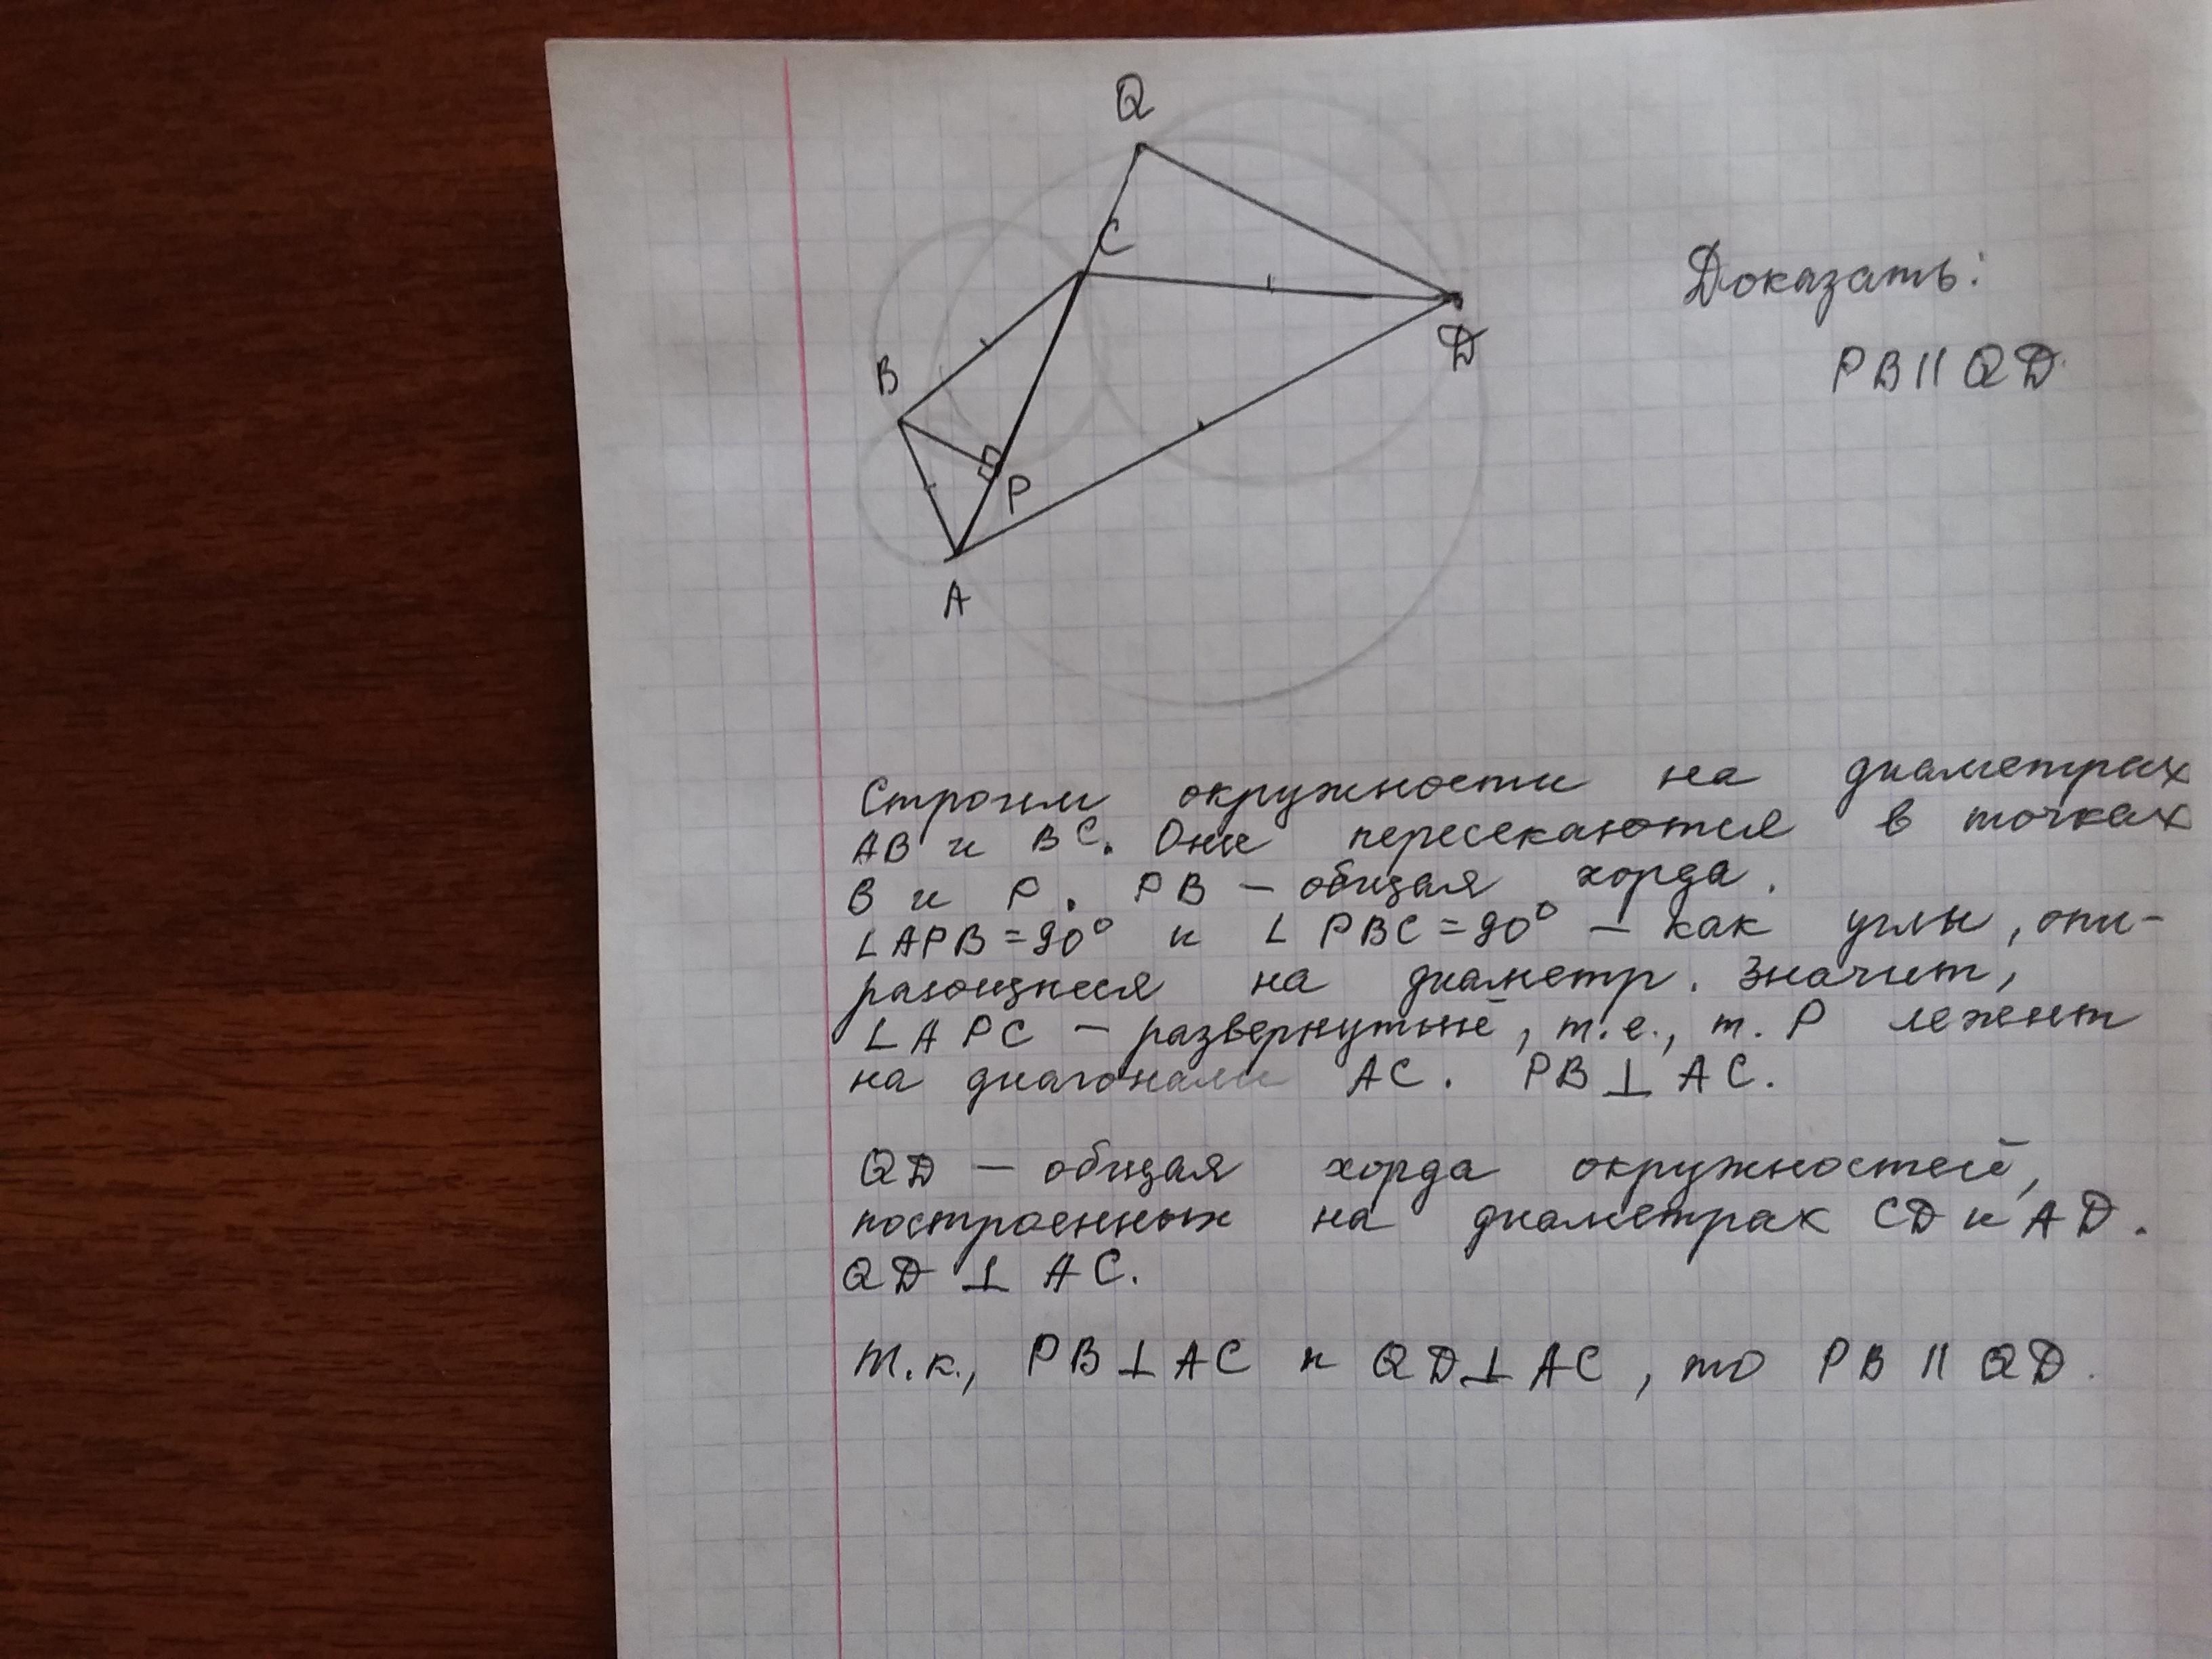 Q
C
B
D
P
A
Доказать:
PB || QD.
Строим окружности на диаметрах
AB и BC. Они пересекаются в точках
B и P. PB – общая хорда.
∠APB = 90° и ∠PBC = 90° – как углы, опи-
рающиеся на диаметр. Значит,
∠APC – развернутый, т.е., т. P лежит
на диагонали AC. PB ⊥ AC.
QD – общая хорда окружностей,
построенных на диаметрах CD и AD.
QD ⊥ AC.
Т.к., PB ⊥ AC и QD ⊥ AC, то PB || QD.